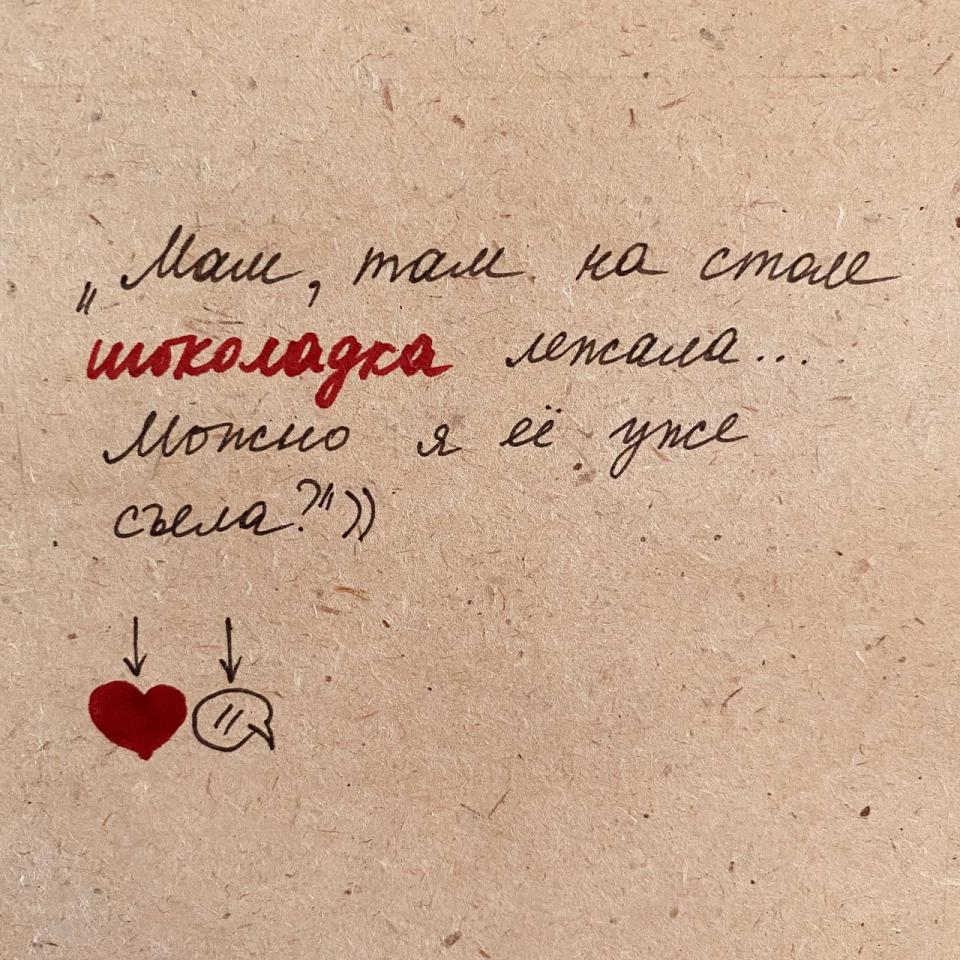 „Мам, там на столе
шоколадка лежала...
Можно я её уже
съела?"))